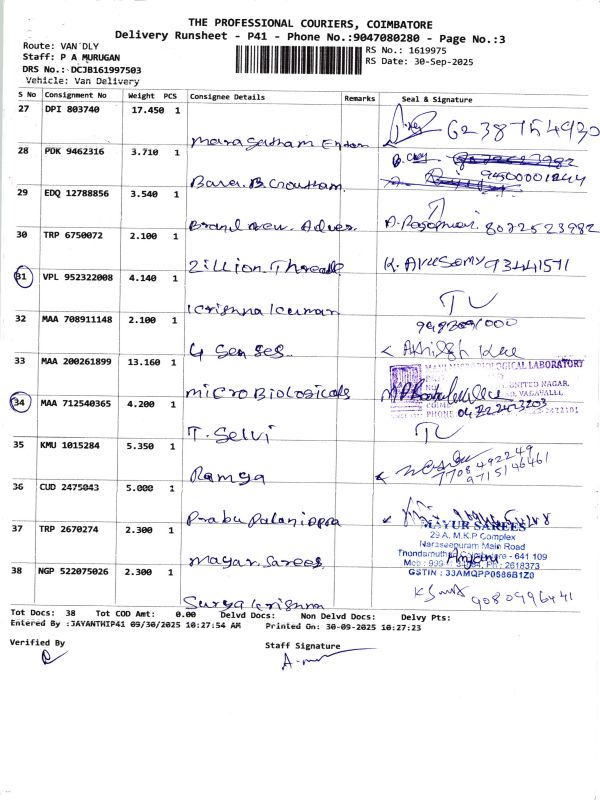 THE PROFESSIONAL COURIERS, COIMBATORE
Delivery Runsheet - P41 - Phone No.:9047080280 - Page No.:3
Route: VAN DLY
RS No.: 1619975
Staff: P A MURUGAN
RS Date: 30-Sep-2025
DRS No.: DCJB161997503
Vehicle: Van Delivery
S No Consignment No Weight PCS Consignee Details Remarks Seal & Signature
27 DPI 803740 17.450 1
Maragatham 6238754930
28 PDK 9462316 3.710 1
9450001244
29 EDQ 12788856 3.540 1
Brand New. Adver. 8072523982
30 TRP 6750072 2.100 1
Zillion Threade 93441571
31 VPL 952322008 4.140 1
Krishna Kumar
32 MAA 708911148 2.100 1
4 Senses
33 MAA 200261899 13.160 1
MicroBiologicals
34 MAA 712540365 4.200 1
T. Selvi
35 KMU 1015284 5.350 1
Ramya
7708492249
9715146461
36 CUD 2475043 5.000 1
Prabu Palaniappa
37 TRP 2670274 2.300 1
Mayur Sarees
MAYUR SAREES
29 A, M.K.P Complex
Naraseepuram Main Road
Coimbatore - 641 109
PH : 2618373
GSTIN : 33AMQPP0686B1Z0
38 NGP 522075026 2.300 1
Surya Krishna 9080996441
Tot Docs: 38 Tot COD Amt: 0.00 Delvd Docs: Non Delvd Docs: Delvy Pts:
Entered By :JAYANTHIP41 09/30/2025 10:27:54 AM Printed On: 30-09-2025 10:27:23
Verified By
Staff Signature